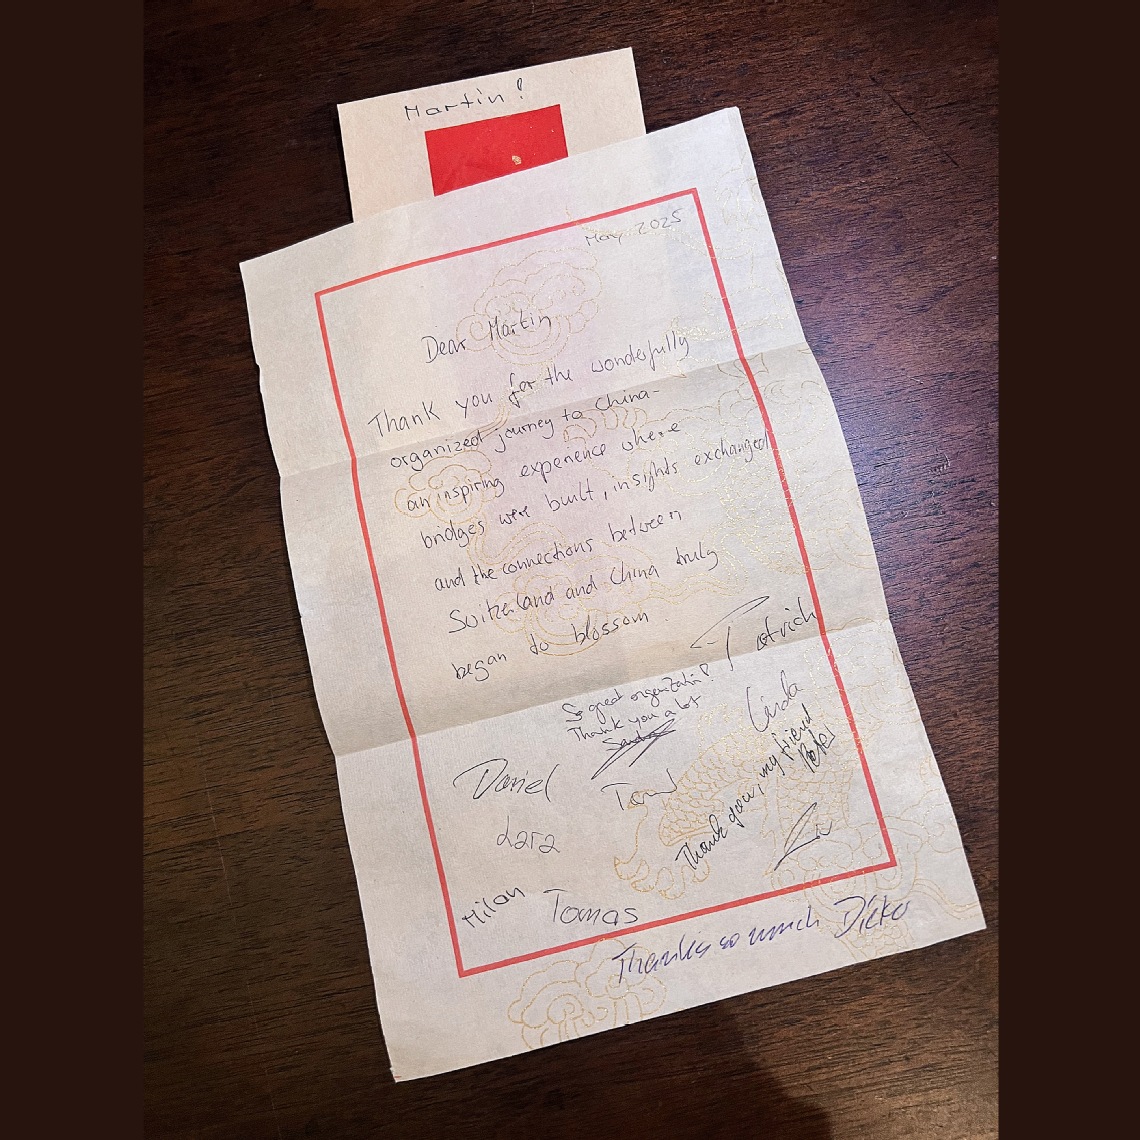 Martin!
May 2025
Dear Martin
Thank you for the wonderfully
organized journey to China-
an inspiring experience where
bridges were built, insights exchanged
and the connections between
Switzerland and China truly
began to blossom.
Patrich
So great organization!
Thank you a lot
Linda
Thank you, my friend
Daniel
Lara
Milan
Tomas
Thanks so much